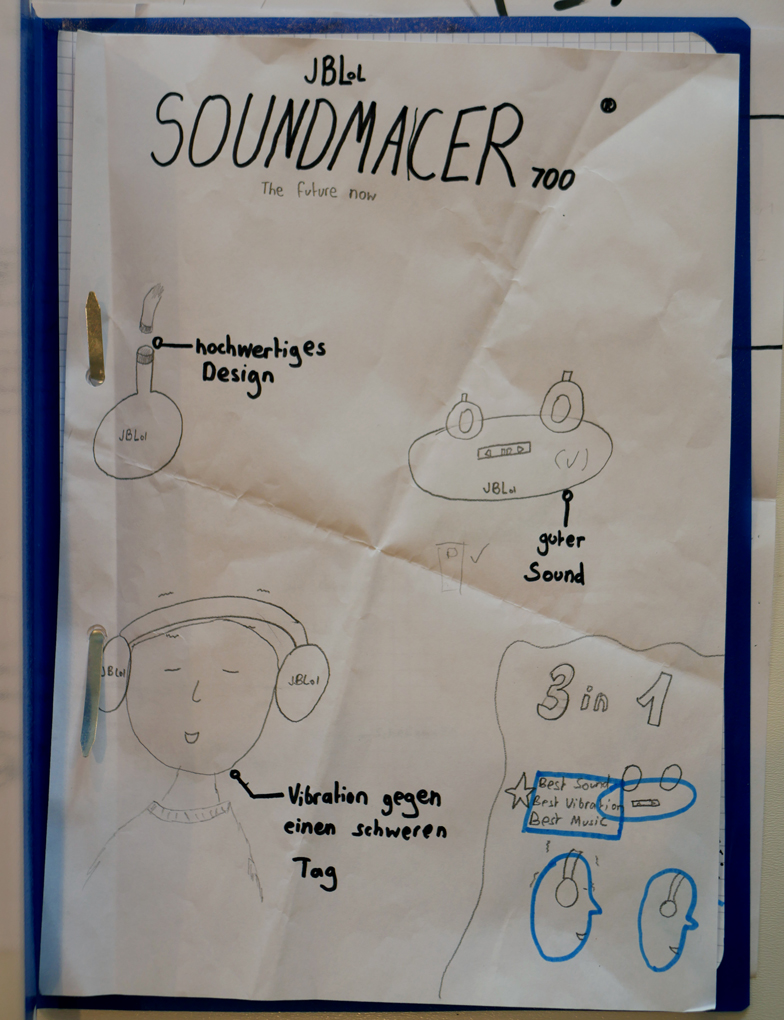 JBLol
SOUNDMACER 700
®
The future now
hochwertiges
Design
JBLol
JBLol
guter
Sound
JBLol
JBLol
Vibration gegen
einen schweren
Tag
3 in 1
Best Sound
Best Vibration
Best Music